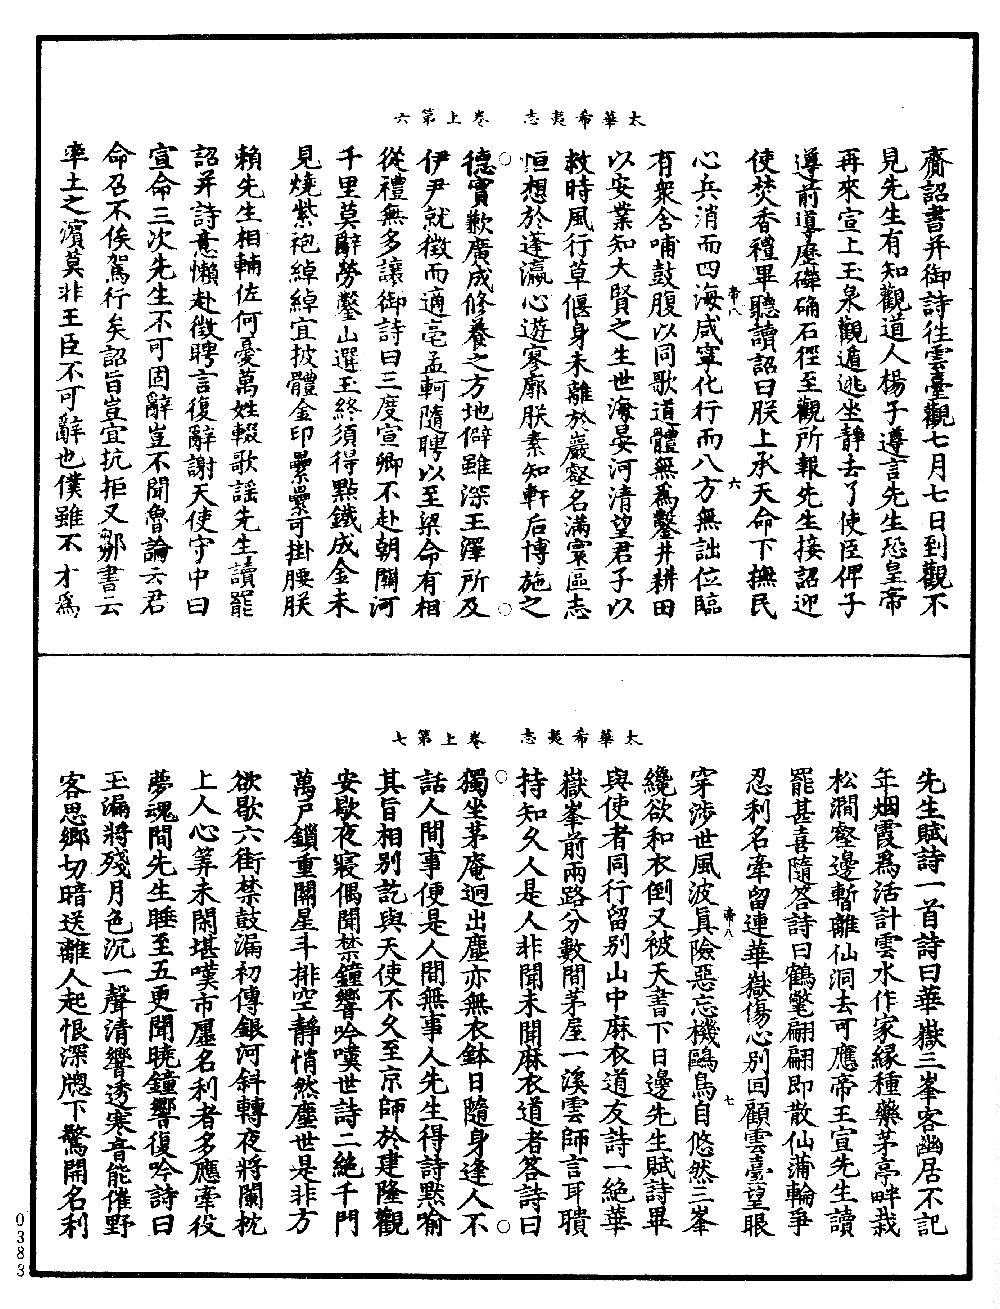 太華希夷志　卷上第六
齎詔書并御詩往雲臺觀七月七日到觀不
見先生有知觀道人楊子遵言先生恐皇帝
再來宣上玉泉觀遁逃坐靜去了使臣俾子
遵前導歷磽确石徑至觀所報先生接詔迎
使焚香禮畢聽讀詔曰朕上承天命下撫民
帝八　六
心兵消而四海咸寧化行而八方無詘位臨
有衆含哺鼓腹以同歌道體無爲鑿井耕田
以安業知大賢之生世海晏河清望君子以
救時風行草偃身未離於巖壑名滿寰區志
恒想於蓬瀛心遊寥廓朕素知軒后博施之
德實歉廣成修養之方地僻雖深王澤所及
伊尹就徵而適亳孟軻隨聘以至梁命有相
從禮無多讓御詩曰三度宣卿不赴朝關河
千里莫辭勞鑿山選玉終須得點鐵成金未
見燒紫袍綽綽宜披體金印纍纍可掛腰朕
賴先生相輔佐何憂萬姓輟歌謠先生讀罷
詔并詩意懶赴徵聘言復辭謝天使守中曰
宣命三次先生不可固辭豈不聞魯論云君
命召不俟駕行矣詔旨豈宜抗拒又鄒書云
率土之濱莫非王臣不可辭也僕雖不才爲
太華希夷志　卷上第七
先生賦詩一首詩曰華嶽三峯客幽居不記
年烟霞爲活計雲水作家緣種藥茅亭畔栽
松澗壑邊暫離仙洞去可應帝王宣先生讀
罷甚喜隨答詩曰鶴氅翩翩即散仙蒲輪爭
忍利名牽留連華嶽傷心別回顧雲臺望眼
帝八　七
穿涉世風波眞險惡忘機鷗鳥自悠然三峯
纔欲和衣倒又被天書下日邊先生賦詩畢
與使者同行留別山中麻衣道友詩一絶華
嶽峯前兩路分數間茅屋一溪雲師言耳聵
持知久人是人非聞未聞麻衣道者答詩曰
獨坐茅庵迥出塵亦無衣鉢日隨身逢人不
話人間事便是人間無事人先生得詩黙喻
其旨相別訖與天使不久至京師於建隆觀
安歇夜寢偶聞禁鐘響吟嘆世詩二絶千門
萬戸鎖重關星斗排空靜悄然塵世是非方
欲歇六街禁鼓漏初傳銀河斜轉夜將闌枕
上人心筭未閑堪嘆市廛名利者多應牽役
夢魂間先生睡至五更聞曉鐘響復吟詩曰
玉漏將殘月色沉一聲清響透寒音能催野
客思鄉切暗送離人起恨深牕下驚開名利
0383